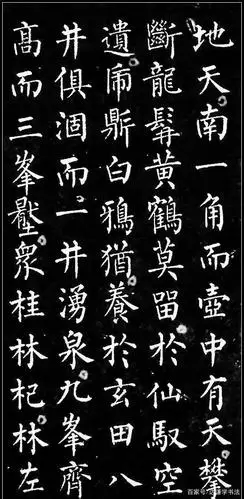 地天南一角而壺中有天攀
斷龍髯黃鶴莫留於仙馭空
遺乕鼎白鴉猶養於玄田八
井俱涸而一井湧泉九峯齊
髙而三峯壓眾桂林杞林左
百家号